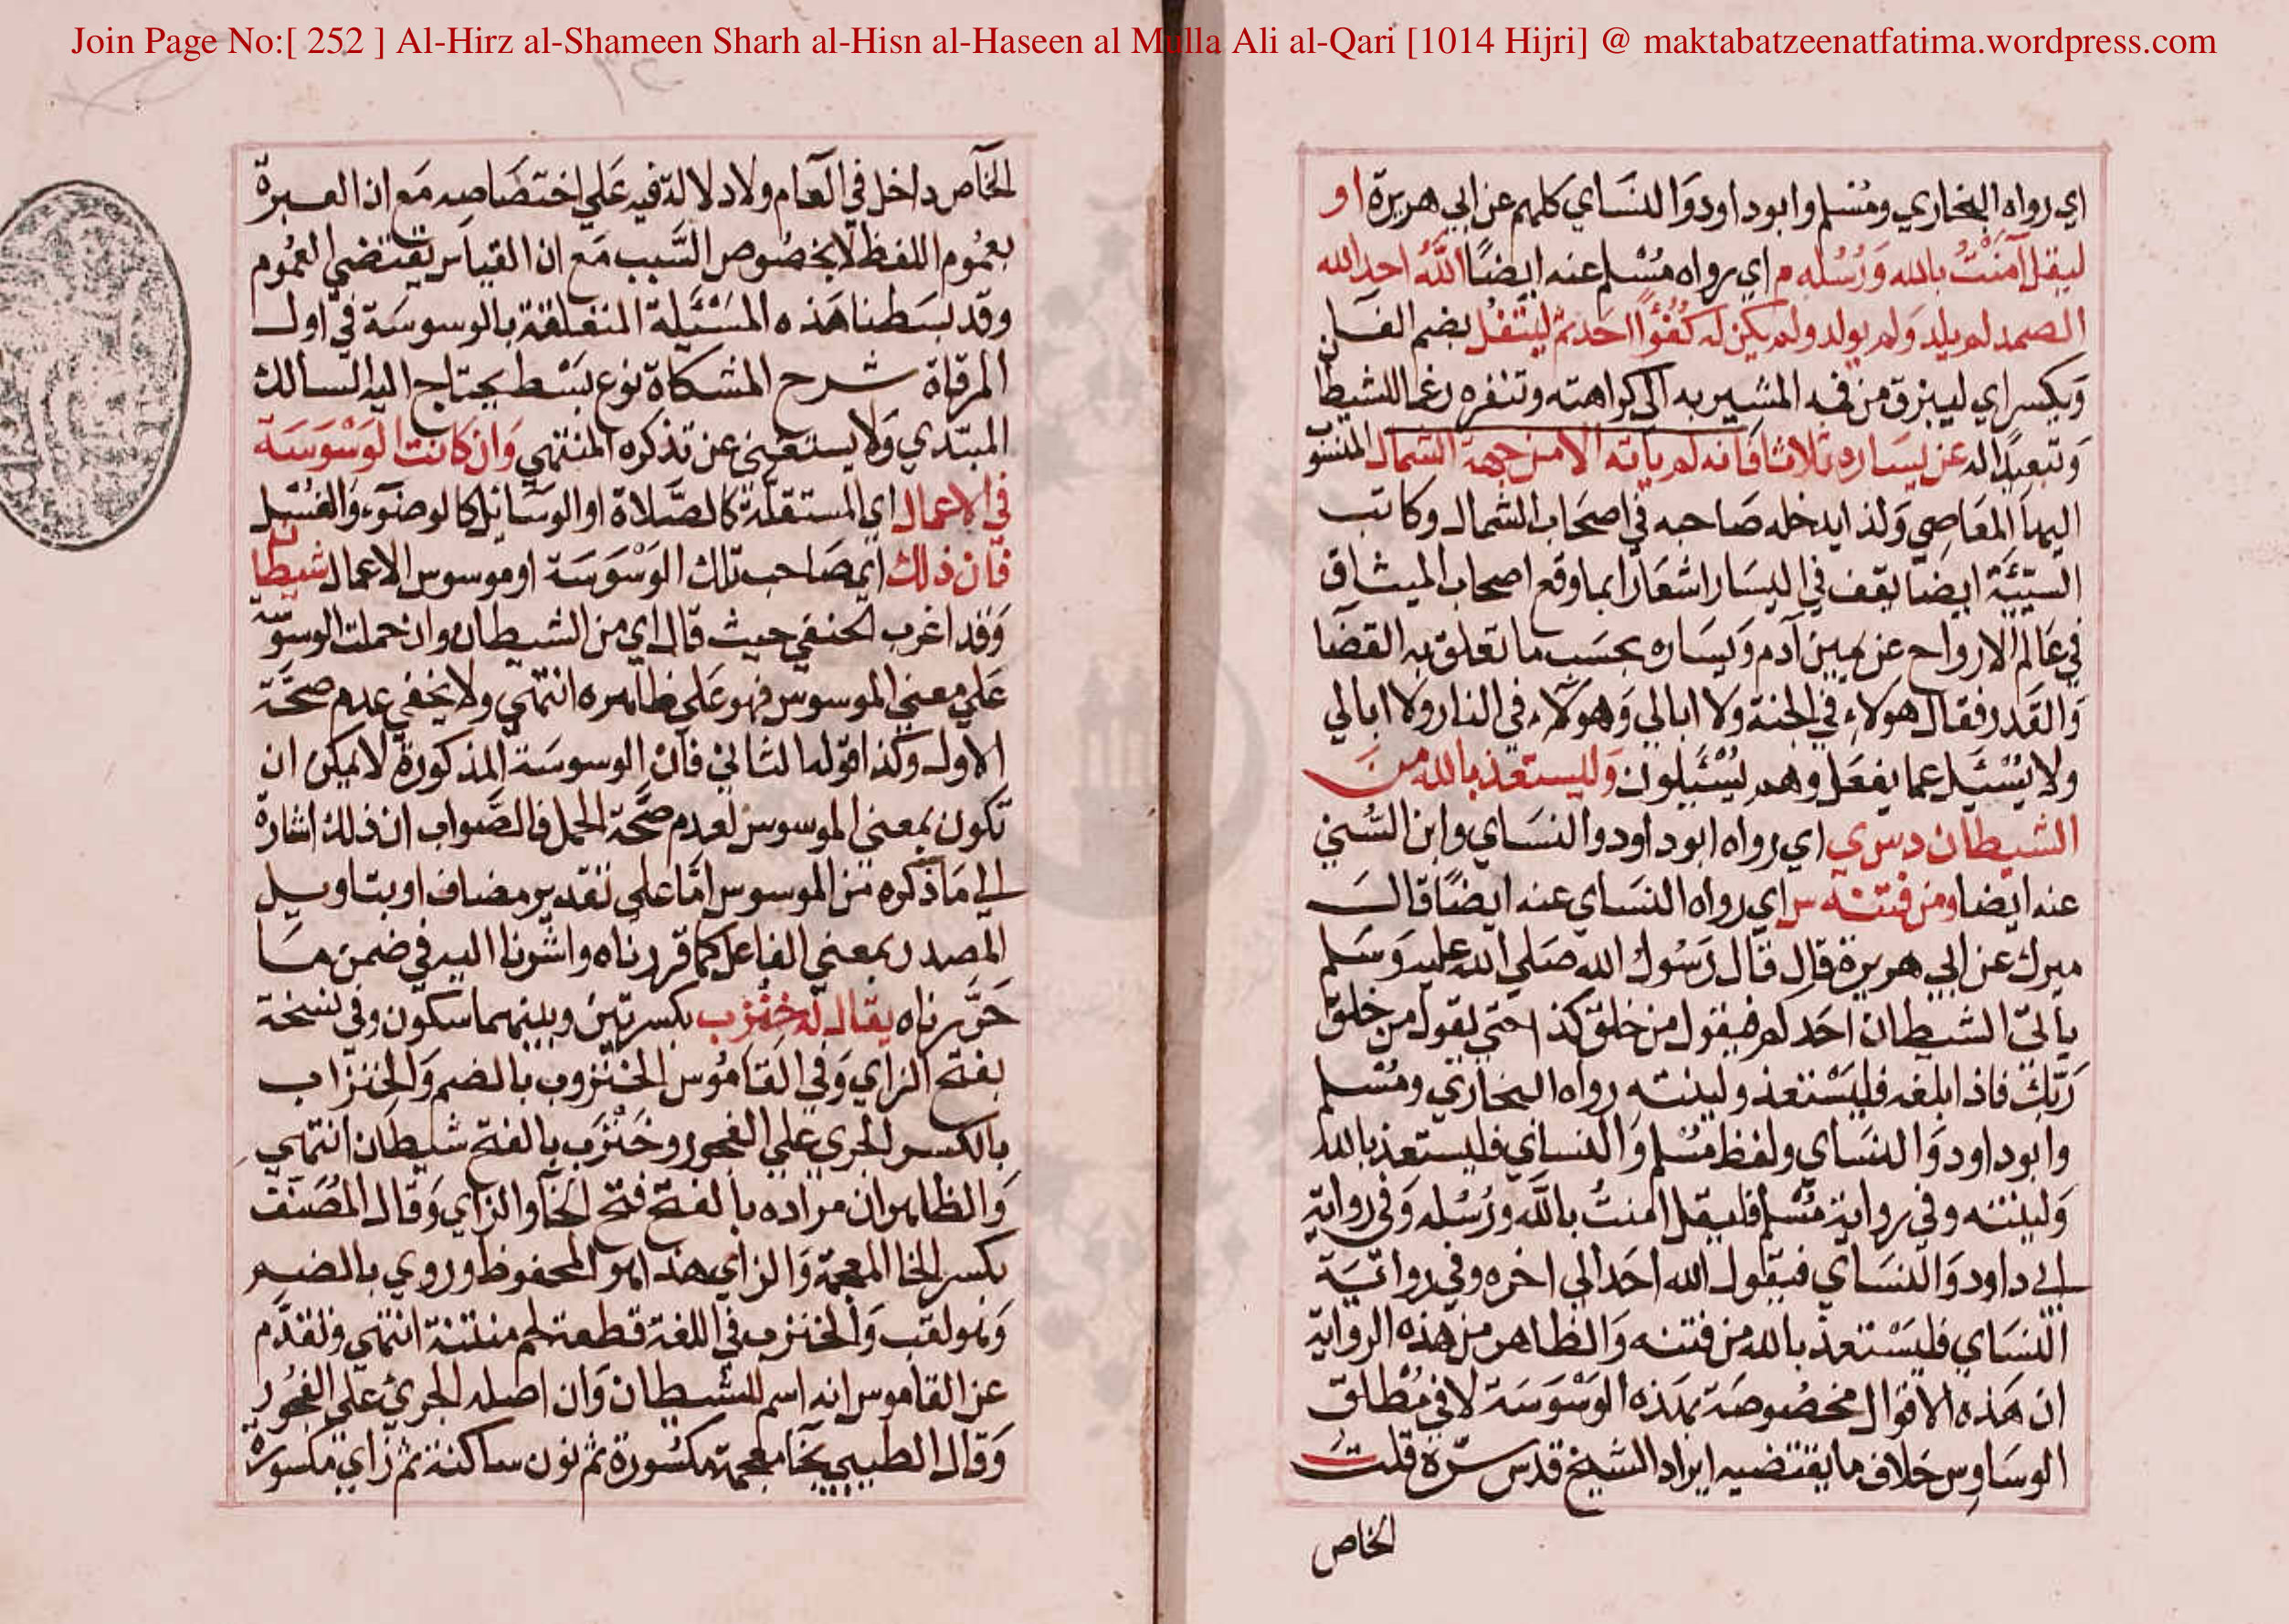 Join Page No:[ 252 ] Al-Hirz al-Shameen Sharh al-Hisn al-Haseen al Mulla Ali al-Qari [1014 Hijri] @ maktabatzeenatfatima.wordpress.com
اي رواه البخاري ومُسْلم وابو داود وَالنسَاي كلهم عن ابي هريرة او
ليقل آمَنْتُ بالله وَرُسُله م اي رواه مُسْلم عنه ايضًا اللَّهُ احد الله
الصمد لم يلد وَلم يولد ولم يكن له كُفُؤًا احَد ثم ليَتْفُل بضم الفــا
وَبكسر اي ليبزق من فيه المشير به الى كراهته وتنفره رغما للشيطا
وَتبعيدًا له عن يسَاره ثلاثا فانه لم ياته الا من جهة الشمال المنسو
اليها المعَاصِي وَلذا يدخله صَاحبه في اصحَاب الشمال وكاتب
السيّئَة ايضا يقف في اليسَار اشعَارًا بما وقع اصحاب الميثاق
في عَالم الارواح عن يمين آدم وَيسَاره بحسَب ما تعلق به القضَا
وَالقَدر فقال هولاء في الجنة ولا ابالي وَهولاء في النار ولا ابالي
ولا يُسْئَل عما يفعَل وهم يُسْئَلون وَليستعذ بالله من
الشيطان د س ي اي رواه ابو داود والنسَاي وابن السُّني
عنه ايضا ومن فتنته س اي رواه النسَاي عنه ايضًا قالَ
ميرك عن ابي هريرة قال قال رَسُول الله صَلي الله عليه وَسَلم
يأتي الشيطان احَدكم فيقول من خلق كذا حتي يقول من خلق
رَبّك فاذا بلغه فليَسْتعذ ولينته رواه البخاري ومُسْلم
وابو داود وَالنسَاي ولفظ مُسْلم وَالنسائي فليستعذ بالله
وَلينته وفي رواية مُسْلم فليقل امنتُ باللَّه ورُسُله وَفي رواية
ابي داود وَالنسَاي فيقول الله احَد الي اخره وفي رواية
النسَاي فليَسْتعذ بالله من فتنه وَالظاهر من هذه الرواية
ان هَذه الاقوال مخصُوصَة بهَذه الوَسْوَسَة لا في مُطْلق
الوسَاوِس خلاف ما يقتضيه ايراد الشيخ قدس سرّه قلت
الخاص
الخَاص داخل في العَام ولا دلالة فيه عَلي اختصَاصِه مَع ان العبرة
بعمُوم اللفظ لا بخصُوص السَّبب مَع ان القيَاس يقتضي العمُوم
وقد بسَطنا هَذه المسْئَلة المتعلقة بالوسوسَة في اول
المرقاة شرح المشكاة نوع بَسْط يحتاج اليه السالك
المبتدي وَلا يستغني عن تذكره المنتهي وَان كانت الوَسْوَسَة
في الاعمال اي المستقلة كالصَّلاة او الوسَائل كالوضوء وَالغسْل
فان ذلك اي صَاحب تلك الوَسْوَسَة او موسوس الاعمال شيطا
وَقد اغرب الحنفي حيث قال اي من الشيطان وان حملت الوسوسة
عَلي معني الموسوس فهو عَلي ظاهره انتهي ولا يخفي عدم صحَّة
الاول وَكذا قوله الثاني فان الوسوسَة المذكورة لا يمكن ان
تكون بمعني الموسوس لعدم صحَّة الحمل فالصَّواب ان ذلك اشارة
الي مَا ذكره من الموسوس امّا علي تقدير مضاف او بتاويل
المصدر بمعني الفاعل كما قررناه واشرنا اليه في ضمن ما
حَرَّرناه يقال له خِنْزب بكسرتين وبينهما سكون وفي نسخة
بفتح الزاي وَفي القامُوس الخنزوب بالضم وَالخنزاب
بالكسر الجري علي الفجور وخَنْزَب بالفتح شيطان انتهي
وَالظاهر ان مراده بالفتح فتح الخا والزاي وَقال المُصَنف
بكسر الخا المعجمة وَالزاي هذا هو المحفوظ وروي بالضم
وَهو لقب وَالخنزب في اللغة قطعة لحم منتنة انتهي وَتقدَّم
عن القاموس انه اسم للشيطان وَان اصله الجريُّ علي الفجُور
وَقال الطيبي بخا معجمة مكسُورة ثم نون ساكنة ثم زاي مكسورة